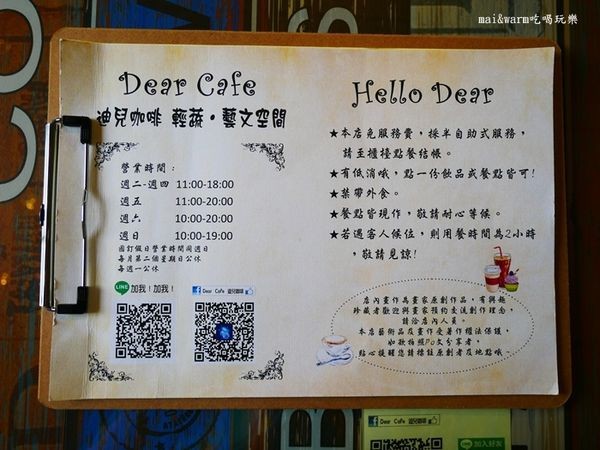 mai&warm吃喝玩樂
Dear Cafe
迪兒咖啡 輕蔬・藝文空間
營業時間：
週二-週四 11:00-18:00
週五 11:00-20:00
週六 10:00-20:00
週日 10:00-19:00
國訂假日營業時間同週日
每月第二個星期日公休
每週一公休
LINE 加我！加我！
Dear Cafe 迪兒咖啡
Hello Dear
★本店免服務費，採半自助式服務，
請至櫃檯點餐結帳。
★有低消哦，點一份飲品或餐點皆可!
★禁帶外食。
★餐點皆現作，敬請耐心等候。
★若遇客人候位，則用餐時間為2小時
，敬請見諒!
店內畫作為畫家原創作品，有興趣
珍藏者歡迎與畫家預約交流創作理念，
請洽店內人員。
本店藝術品及畫作受著作權法保護，
如欲拍照Po文分享者，
貼心提醒您請標註原創者及地點哦~
Dear Cafe 迪兒咖啡
LINE 加入好友